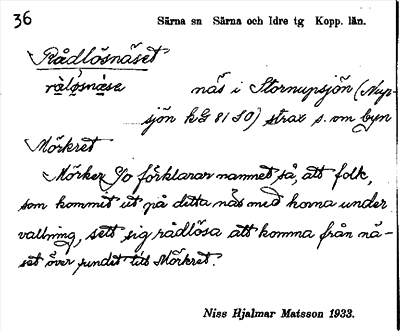 36
Särna sn Särna och Idre tg Kopp. län.
Rådlösnäset
rålø̀snäse näs i Stornupsjön (Nup-
sjön kG 81 30) strax s. om byn
Mörkret
Mörker Jo förklarar namnet så, att folk,
som kommit ut på detta näs med korna under
vallning, sett sig rådlösa att komma från nä-
set över sundet till Mörkret.
Niss Hjalmar Matsson 1933.